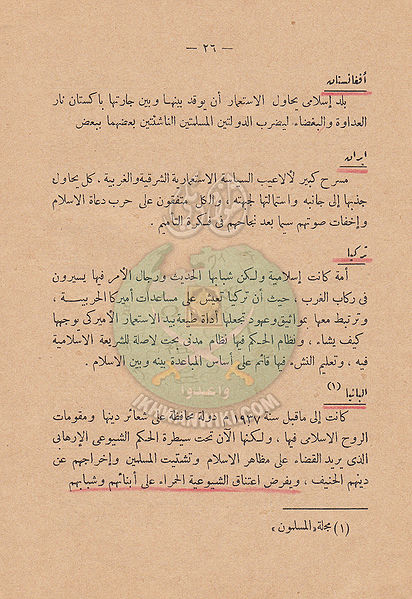 — ٢٦ —
أفغانستان
بلد إسلامى يحاول الاستعمار أن يوقد بينها وبين جارتها باكستان نار
العداوة والبغضاء ليضرب الدولتين المسلمتين الناشئتين بعضهما ببعض
ايران
مسرح كبير لألاعيب السياسة الاستعمارية الشرقية والغربية . كل يحاول
جذبها إلى جانبه واستمالتها لجهته . والكل متفقون على حرب دعاة الاسلام
وإخفات صوتهم سيما بعد نجاحهم فى فكرة التأميم .
تركيا
أمة كانت إسلامية ولكن شبابها الحديث ورجال الأمر فيها يسيرون
فى ركاب الغرب ، حيث أن تركيا تعيش على مساعدات أميركا الحربية ،
وترتبط معها بمواثيق وعهود تجعلها أداة طيعة بيد الاستعمار الأميركى يوجهها
كيف يشاء ، ونظام الحكم فيها نظام مدنى بحت لاصلة للشريعة الاسلامية
فيه ، وتعليم النشء فيها قائم على أساس المباعدة بينه وبين الاسلام .
البانيا (١)
كانت إلى ماقبل سنة ١٩٣٧ م دولة محافظة على شعائر دينها ومقومات
الروح الاسلامى فيها ، ولكنها الآن تحت سيطرة الحكم الشيوعى الإرهابى
الذى يريد القضاء على مظاهر الاسلام وتشتيت المسلمين وإخراجهم عن
دينهم الحنيف ، ويفرض اعتناق الشيوعية الحمراء على أبنائهم وشبابهم
(١) مجلة «المسلمون»
وأعدوا
IKHWANWIKI.COM